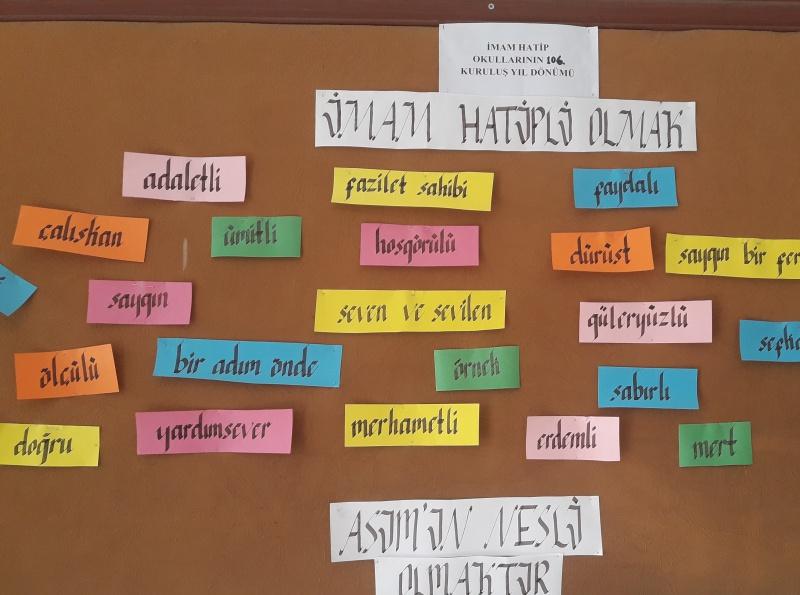 İMAM HATİP
OKULLARININ 106.
KURULUŞ YIL DÖNÜMÜ
İMAM HATİPLİ OLMAK
adaletli
fazilet sahibi
faydalı
çalışkan
ümitli
hoşgörülü
dürüst
saygın bir fer
saygın
seven ve sevilen
güleryüzlü
şefka
ölçülü
bir adım önde
örnek
sabırlı
doğru
yardımsever
merhametli
erdemli
mert
ASIM'IN NESLİ
OLMAKTIR